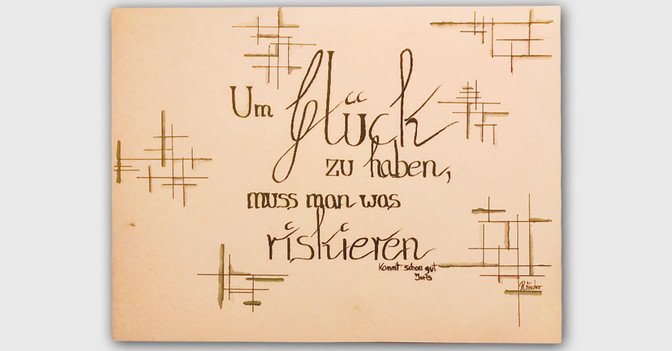 Um Glück
zu haben,
muss man was
riskieren
Kommt schon gut
Joris